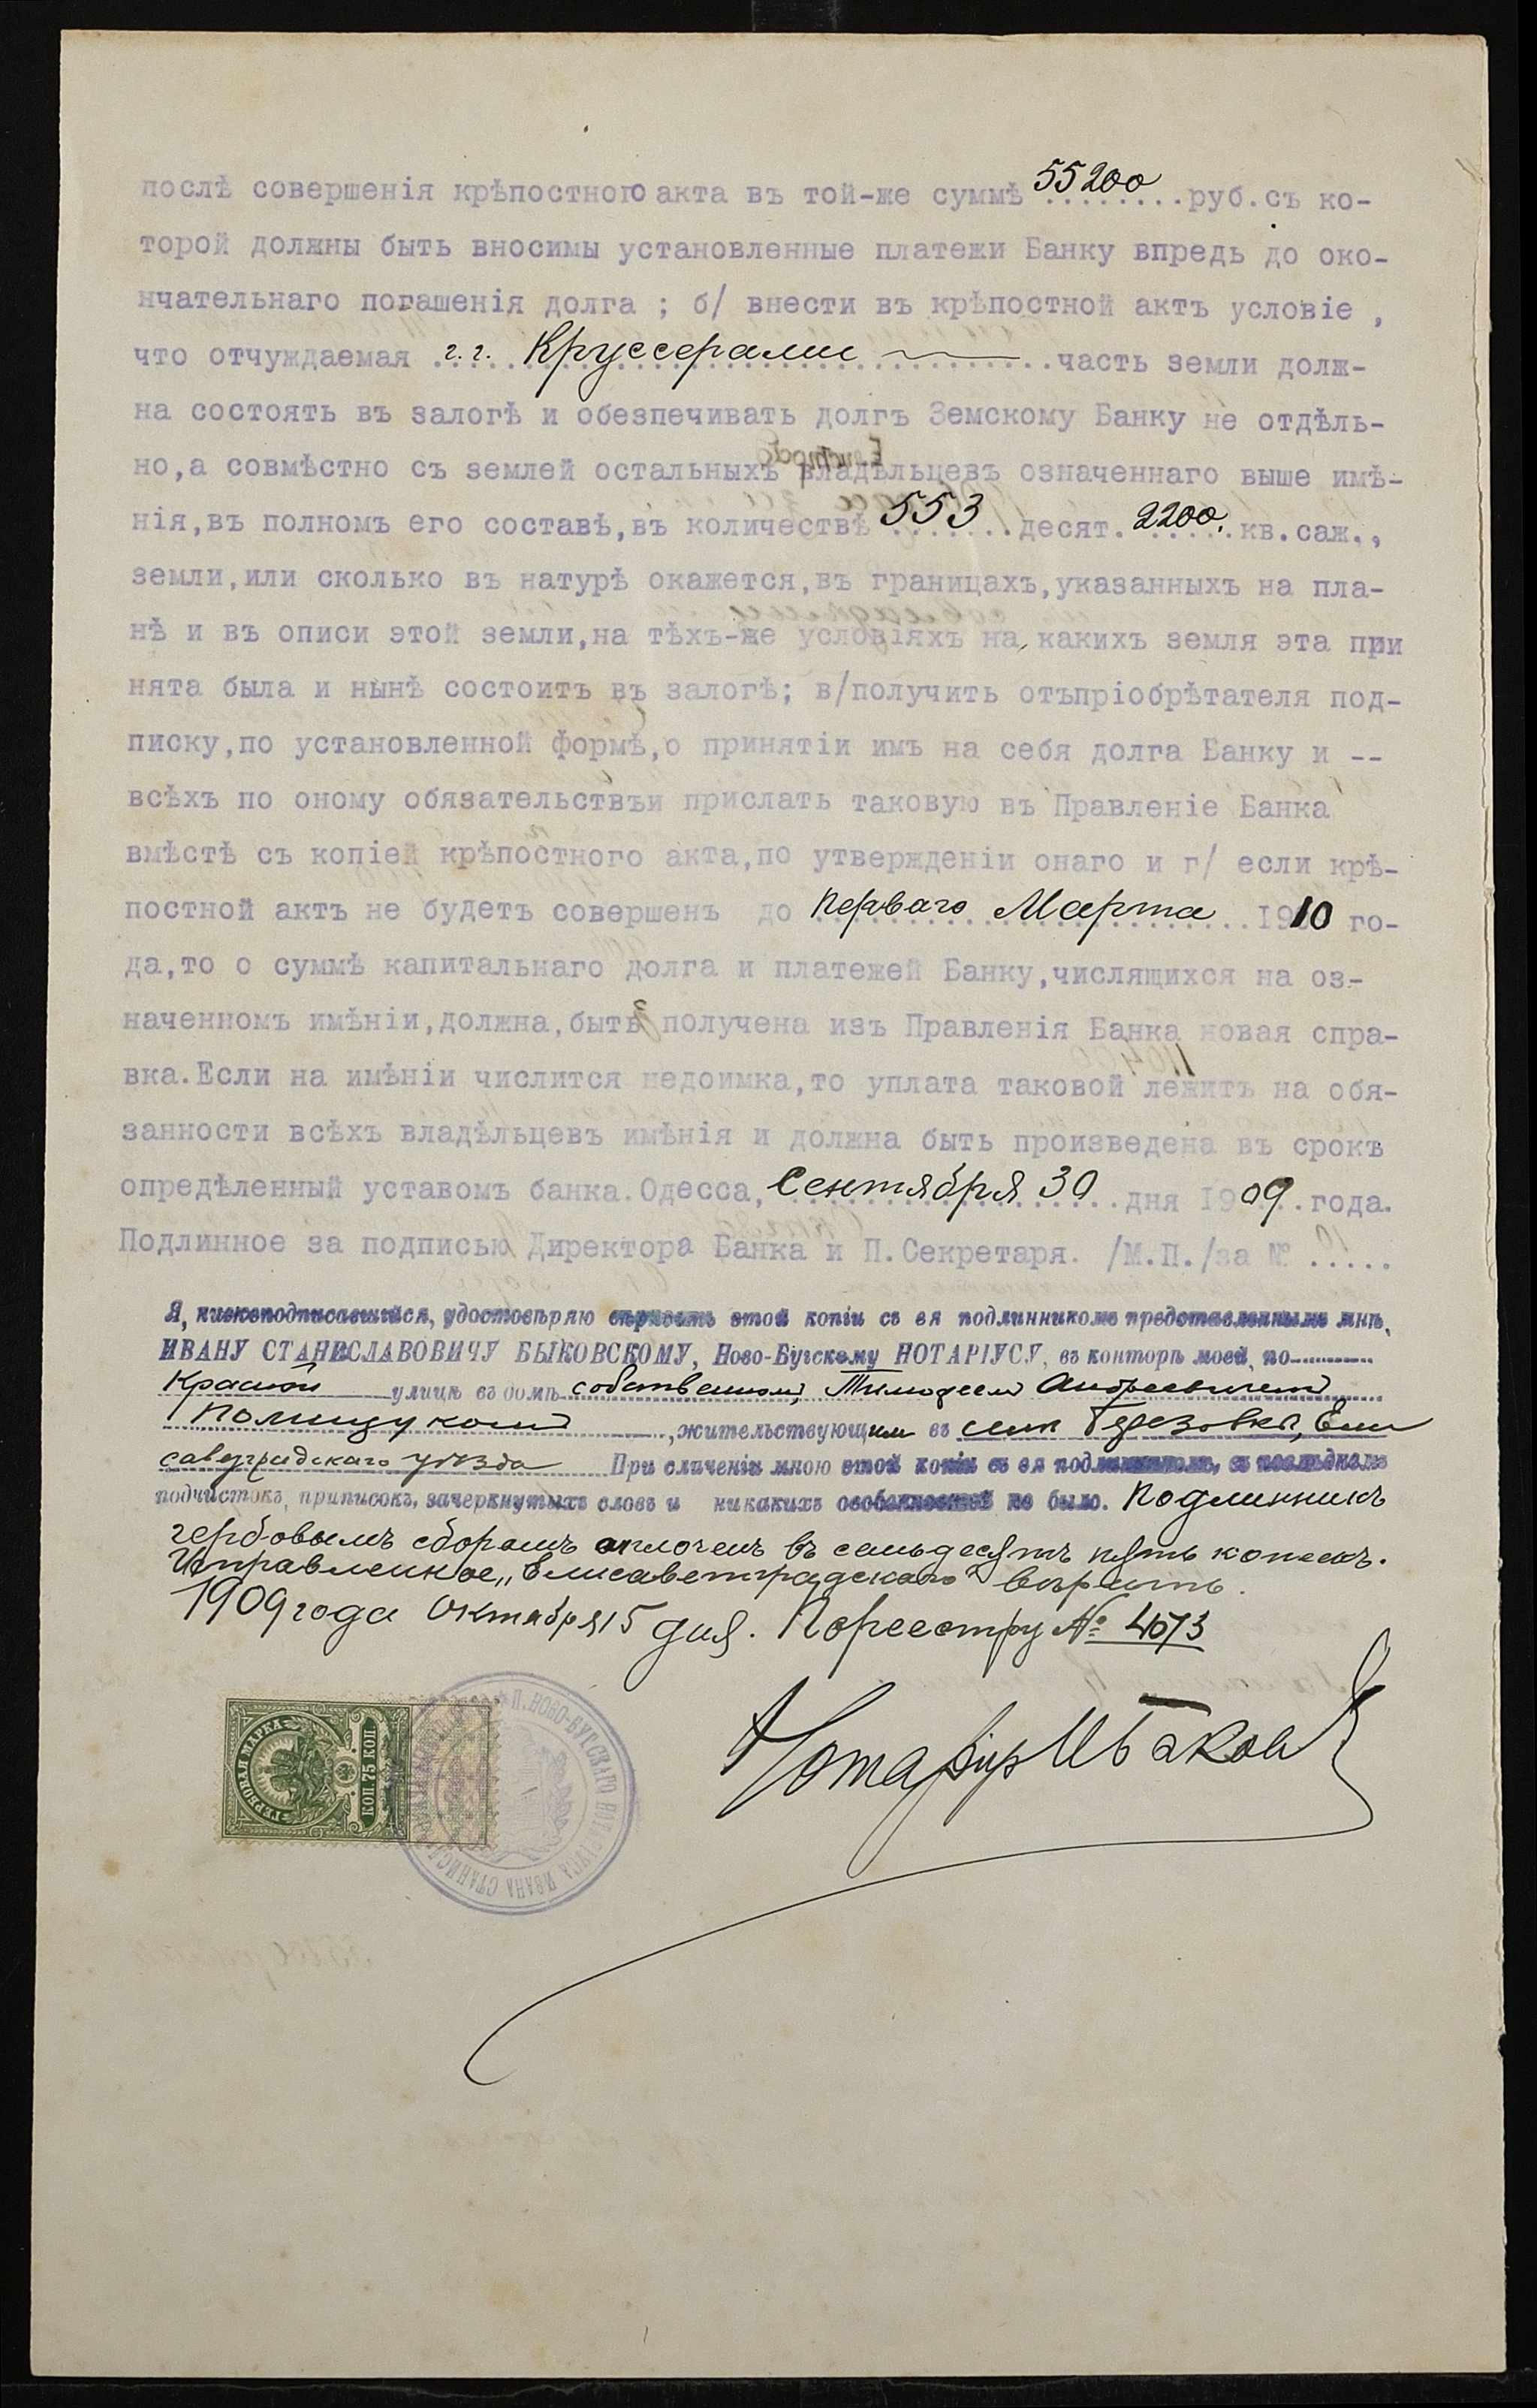 послѣ совершенія крѣпостного акта въ той-же суммѣ 55200 руб.съ ко-
торой должны быть вносимы установленные платежи Банку впредь до око-
нчательнаго погашенія долга ; б/ внести въ крѣпостной актъ условіе ,
что отчуждаемая г.г. Круссерами часть земли долж-
на состоять въ залогѣ и обезпечивать долгъ Земскому Банку не отдѣль-
но,а совмѣстно съ землей остальныхъ владѣльцевъ означеннаго выше имѣ-
нія,въ полномъ его составѣ,въ количествѣ 553 десят. 2200. кв.саж.,
земли,или сколько въ натурѣ окажется,въ границахъ,указанныхъ на пла-
нѣ и въ описи этой земли,на тѣхъ-же условіяхъ на, какихъ земля эта при
нята была и нынѣ состоитъ въ залогѣ; в/получить отъпріобрѣтателя под-
писку,по установленной формѣ,о принятіи имъ на себя долга Банку и --
всѣхъ по оному обязательствъи прислать таковую въ Правленіе Банка
вмѣстѣ съ копіей крѣпостного акта,по утвержденіи онаго и г/ если крѣ-
постной актъ не будетъ совершенъ до перваго Марта 1910 го-
да,то о суммѣ капитальнаго долга и платежей Банку,числящихся на оз-
наченномъ имѣніи,должна,быть получена изъ Правленія Банка новая спра-
вка.Если на имѣніи числится недоимка,то уплата таковой лежитъ на обя-
занности всѣхъ владѣльцевъ имѣнія и должна быть произведена въ срокъ
опредѣленный уставомъ банка.Одесса, Сентября 30 дня 1909 года.
Подлинное за подписью Директора Банка и П.Секретаря. /М.П./за № .....
Я, нижеподписавшійся, удостовѣряю вѣрность этой копіи съ ея подлинникомъ представленнымъ мнѣ,
ИВАНУ СТАНИСЛАВОВИЧУ БЫКОВСКОМУ, Ново-Бугскому НОТАРІУСУ, въ конторѣ моей, по
Красной улицѣ въ домѣ собственном, Тимофеем Андреевичем
Полищуком, жительствующим въ селѣ Ели
саветградскаго уѣзда При сличеніи мною этой копіи съ ея подлинникомъ, въ послѣднемъ
подчистокъ, приписокъ, зачеркнутыхъ словъ и никакихъ особенностей не было. Подлинникъ
гербовымъ сборомъ оплоченъ въ семьдесятъ пять копеекъ.
Исправленное „Елисаветградскаго" вѣрить.
1909 года Октября 15 дня. По реестру № 4073
Нотаріус
ГЕРБОВАЯ МАРКА
75 КОП
КОП. 75 КОП
П. НОВО-БУГСКАГО НОТАРІУСА ИВАНА СТАНИСЛ